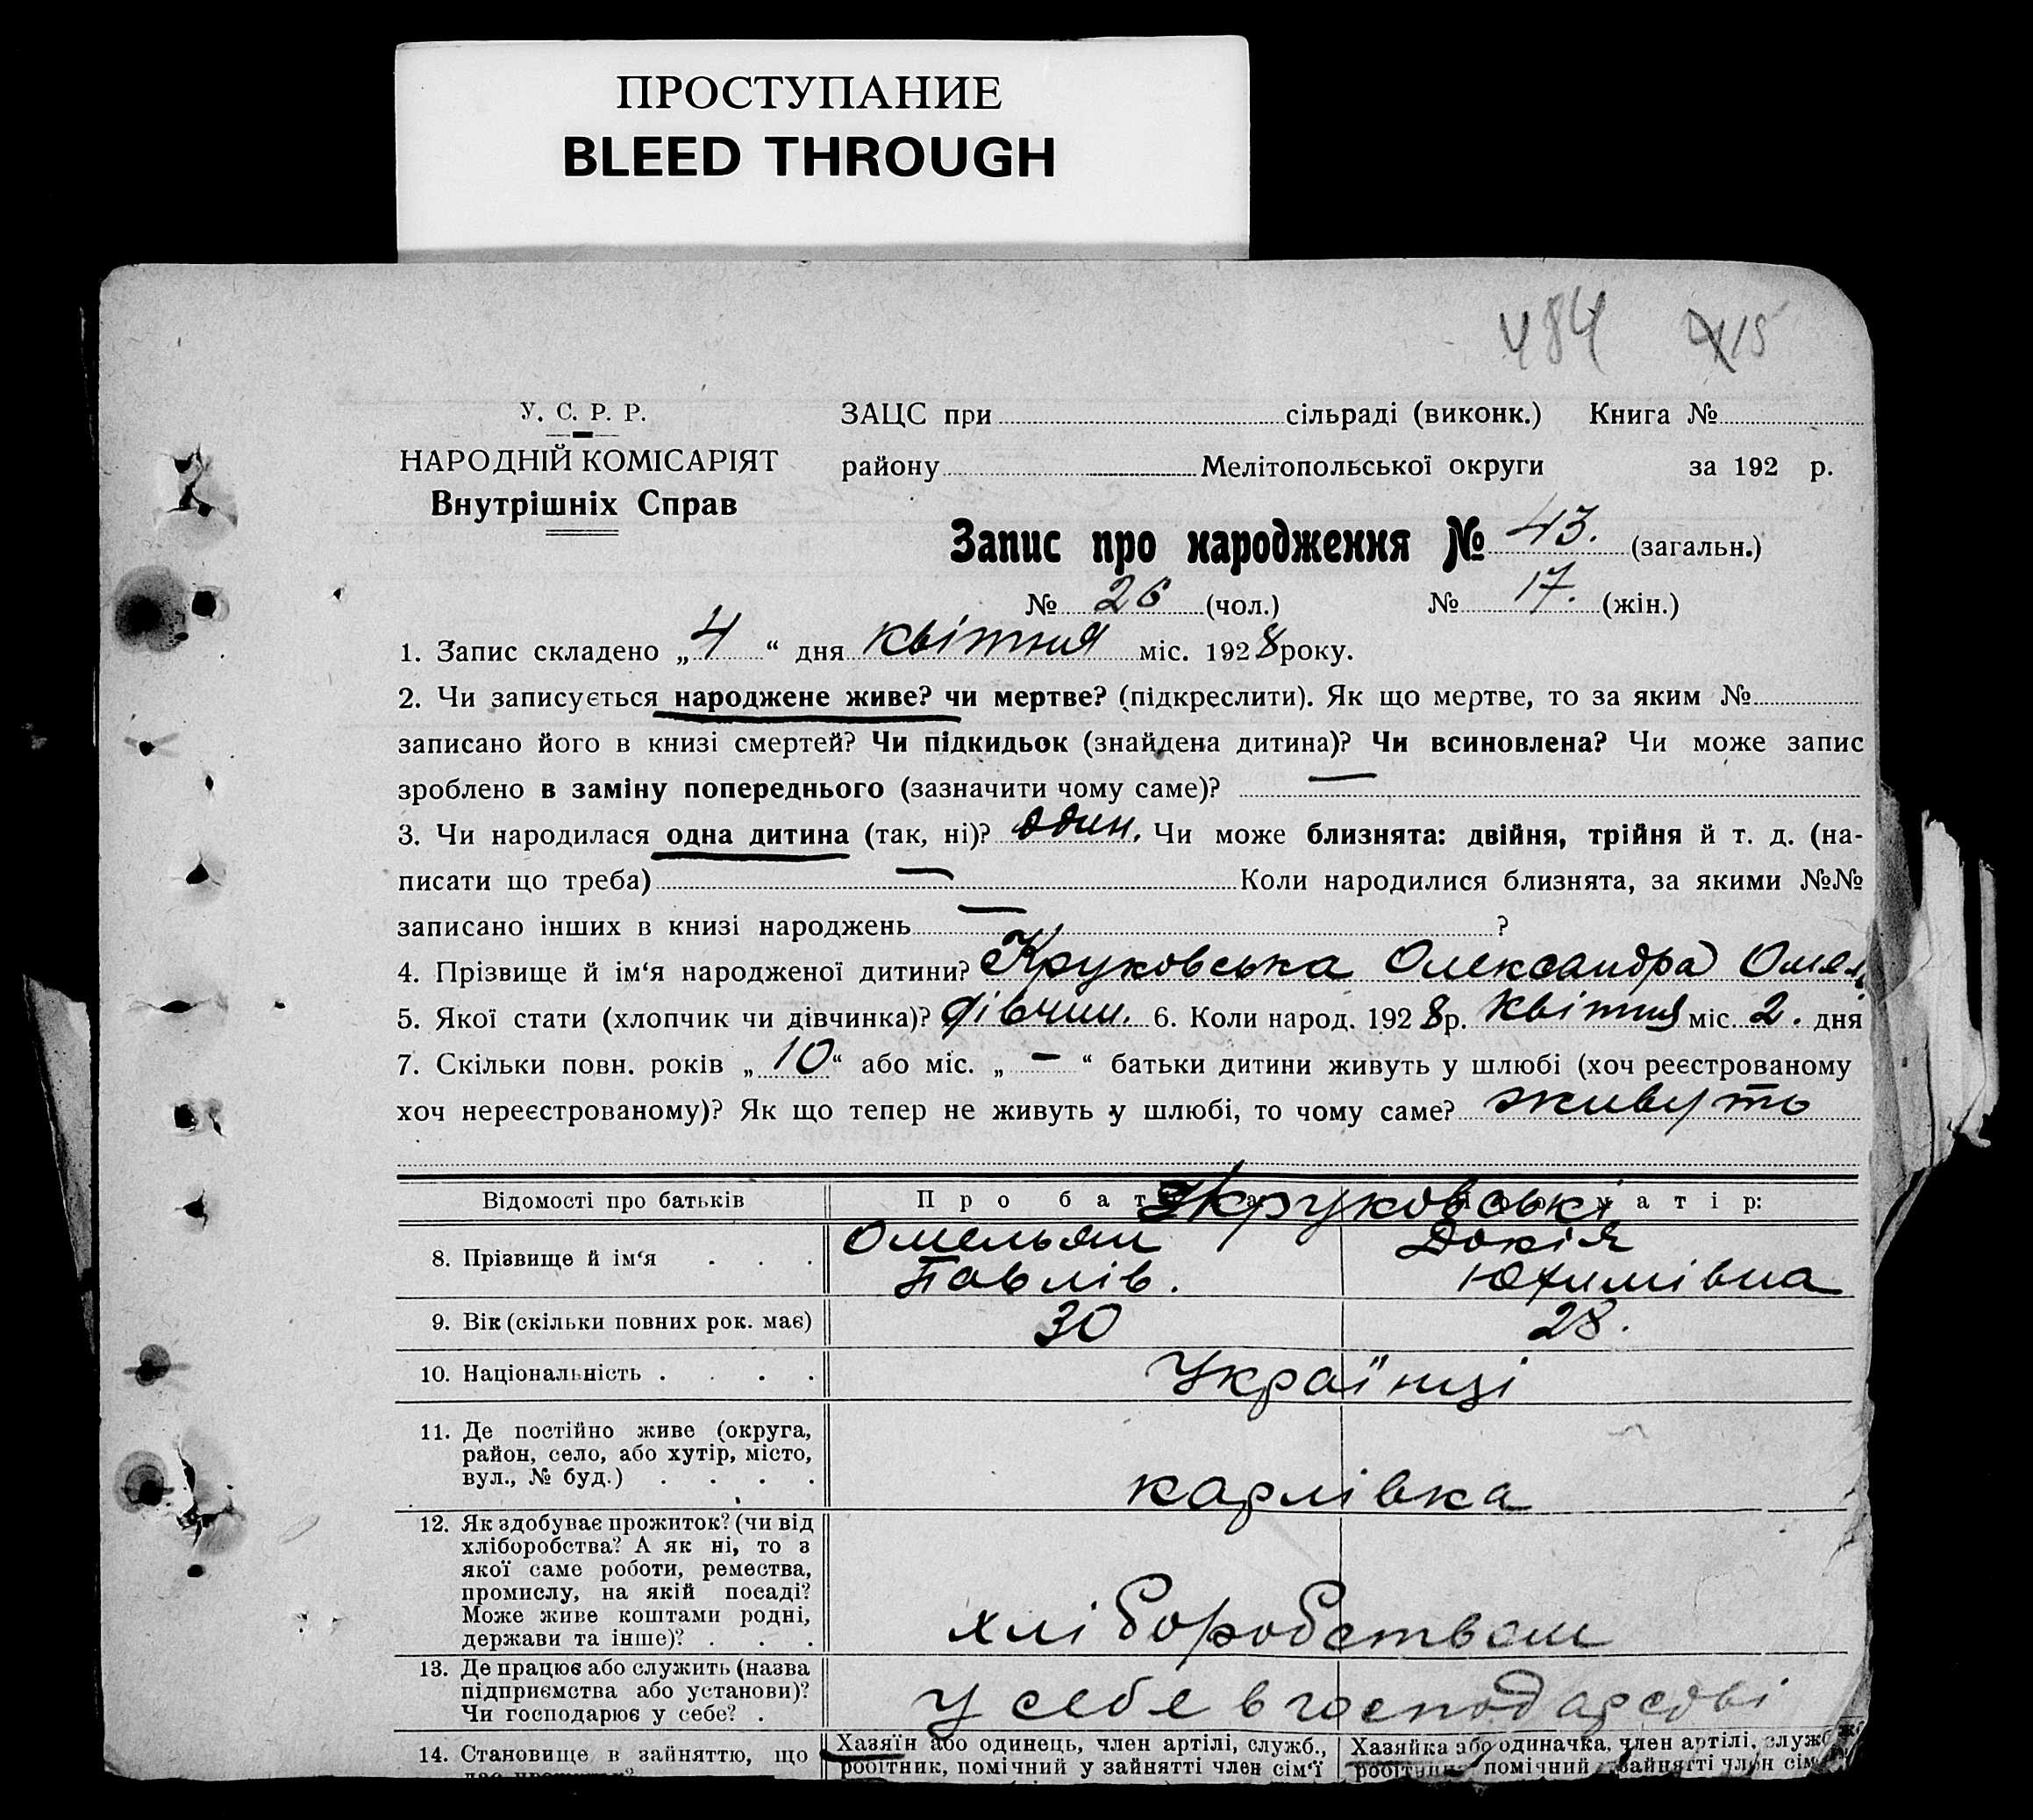 ПРОСТУПАНИЕ
BLEED THROUGH
484 415
У. С. Р. Р.
НАРОДНІЙ КОМІСАРІЯТ
Внутрішніх Справ
ЗАЦС при сільраді (виконк.) Книга №
району Мелітопольської округи за 192 р.
Запис про народження № 43. (загальн.)
№ 26 (чол.) № 17. (жін.)
1. Запис складено „4“ дня квітня міс. 1928 року.
2. Чи записується народжене живе? чи мертве? (підкреслити). Як що мертве, то за яким №
записано його в книзі смертей? Чи підкидьок (знайдена дитина)? Чи всиновлена? Чи може запис
зроблено в заміну попереднього (зазначити чому саме)? —
3. Чи народилася одна дитина (так, ні)? один. Чи може близнята: двійня, трійня й т. д. (на-
писати що треба) — Коли народилися близнята, за якими №№
записано інших в книзі народжень — ?
4. Прізвище й ім‘я народженої дитини? Круковська Олександра Омел
5. Якої стати (хлопчик чи дівчинка)? дівчин. 6. Коли народ. 1928 р. квітня міс. 2. дня
7. Скільки повн. років „10“ або міс. „—“ батьки дитини живуть у шлюбі (хоч реєстрованому
хоч нереєстрованому)? Як що тепер не живуть у шлюбі, то чому саме? живуть
Відомості про батьків Про батька: Про матір:
Круковські
8. Прізвище й ім‘я . . . Омельян Докія
Павлів. Юхимівна
9. Вік (скільки повних рок. має) 30 28.
10. Національність . . . . Українці
11. Де постійно живе (округа,
район, село, або хутір, місто,
вул., № буд.) . . . . Карлівка
12. Як здобуває прожиток? (чи від
хліборобства? А як ні, то з
якої саме роботи, ремества,
промислу, на якій посаді?
Може живе коштами родні,
держави та інше)? . . . хліборобством
13. Де працює або служить (назва
підприємства або установи)?
Чи господарює у себе? . у себе в господарстві
14. Становище в зайняттю, що
дає прожиток?
Хазяїн або одинець, член артілі, служб.,
робітник, помічний у зайнятті член сім‘ї
Хазяйка або одиначка, член артілі, служб
робітниця помічний зайнятті член сім